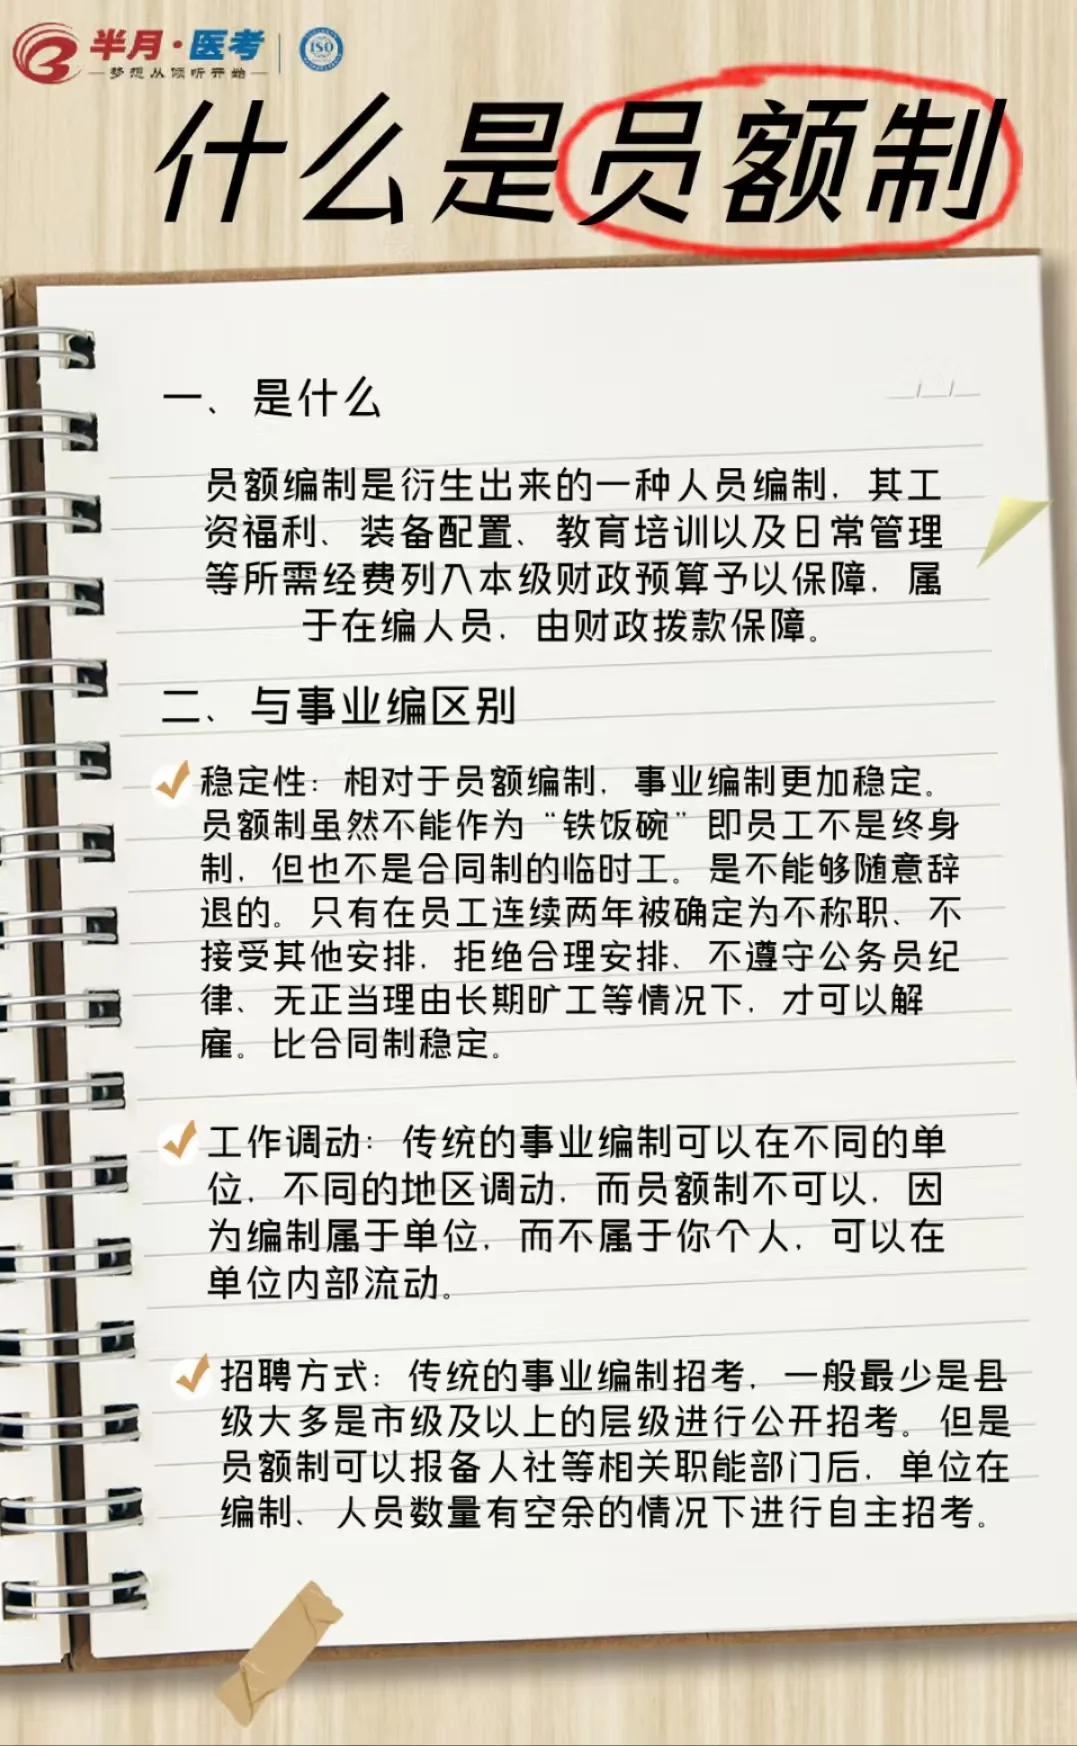 半月·医考
梦想从倾听开始
ISO
什么是员额制
一、是什么
员额编制是衍生出来的一种人员编制，其工
资福利、装备配置、教育培训以及日常管理
等所需经费列入本级财政预算予以保障，属
于在编人员，由财政拨款保障。
二、与事业编区别
稳定性：相对于员额编制，事业编制更加稳定。
员额制虽然不能作为“铁饭碗”即员工不是终身
制，但也不是合同制的临时工。是不能够随意辞
退的。只有在员工连续两年被确定为不称职、不
接受其他安排，拒绝合理安排、不遵守公务员纪
律、无正当理由长期旷工等情况下，才可以解
雇。比合同制稳定。
工作调动：传统的事业编制可以在不同的单
位，不同的地区调动，而员额制不可以，因
为编制属于单位，而不属于你个人，可以在
单位内部流动。
招聘方式：传统的事业编制招考，一般最少是县
级大多是市级及以上的层级进行公开招考。但是
员额制可以报备人社等相关职能部门后，单位在
编制、人员数量有空余的情况下进行自主招考。